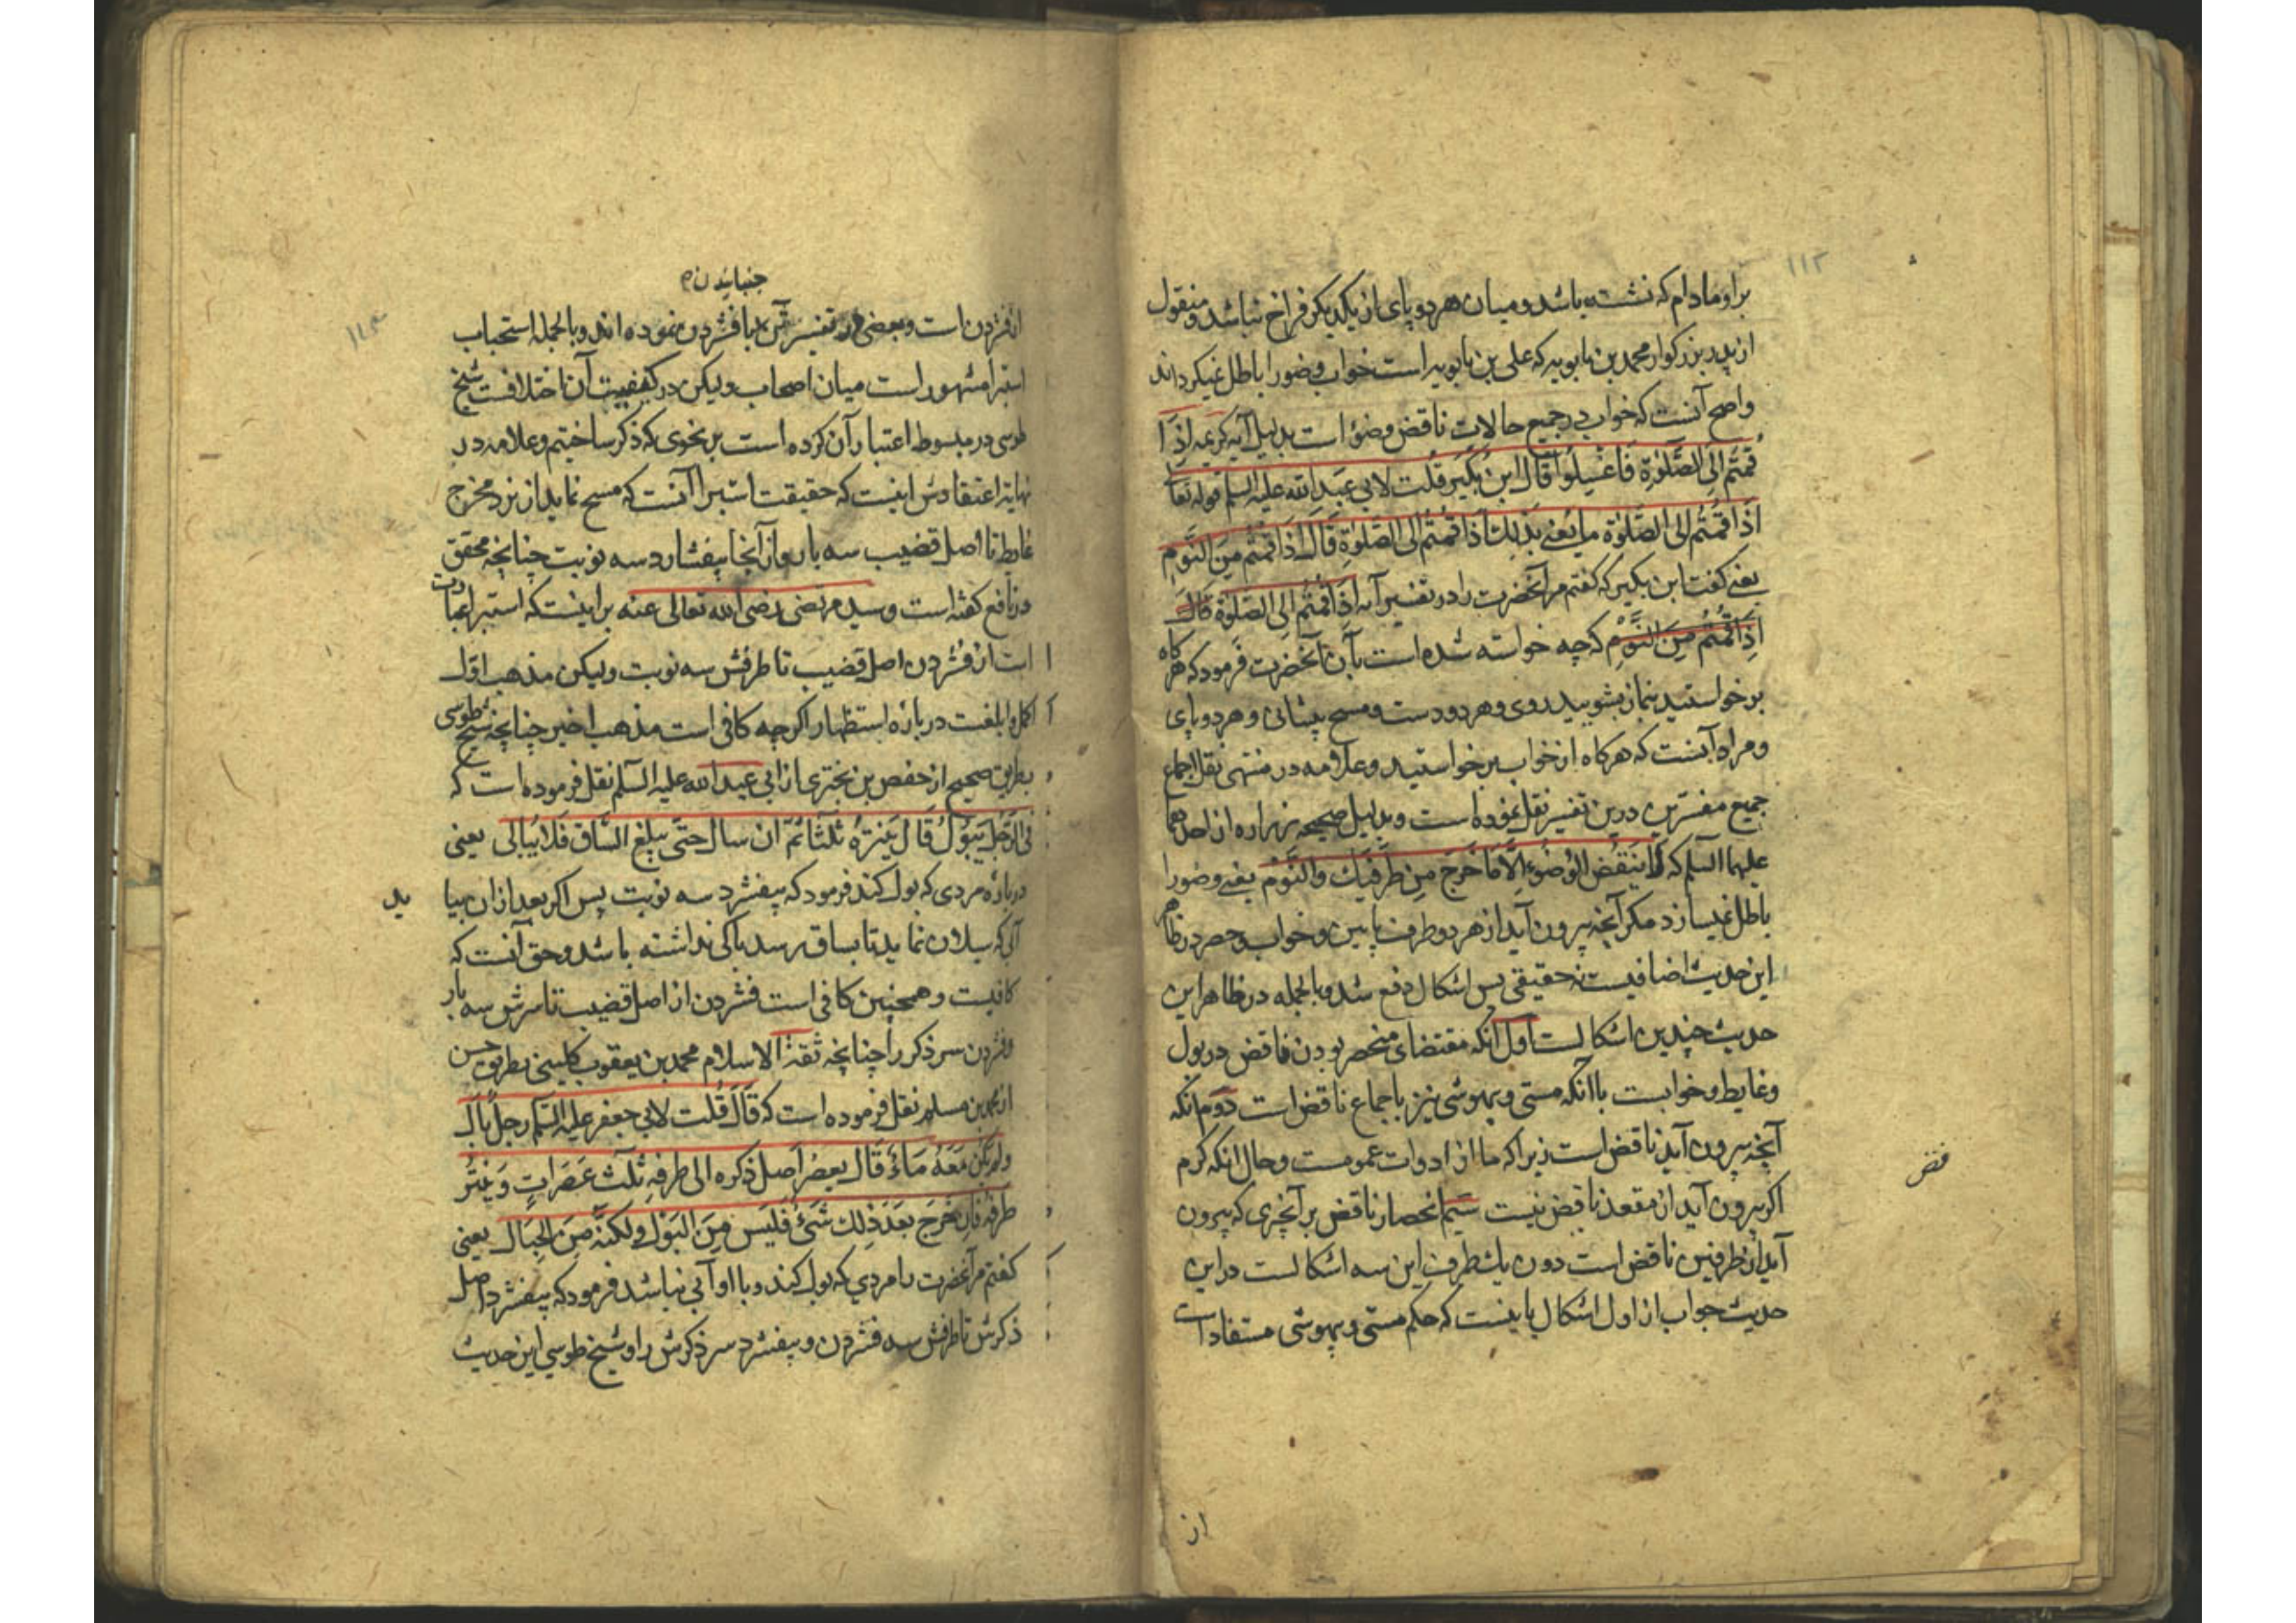 ۱۱۲
براو مادام که نشسته باشد و میان هر دو پای از یکدیکر فراخ نباشد و منقول
از پدر بزرکوار محمد بن بابویه که علی بن بابویه است خواب وضو را باطل نمیکرداند
واصح آنست که خواب در جمیع حالات ناقض وضؤ است بدلیل آیه کریمه اِذَا
قُمتُم اِلَی الصَّلوٰةِ فَاغسِلُوا قَالَ ابنُ بُکَیر قُلت لابی عَبدِ الله علیه السلم قوله تعا
اِذَا قُمتُم اِلی الصَّلوٰة ما یُعنی بِذٰلِكَ اِذَا قُمتُم اِلی الصَّلوٰةِ قَالَ اِذَا قُمتُم مِنَ النَّومِ
یعنی کفت ابن بکیر که کفتم مر آنحضرت را در تفسیر آیه اِذَا قُمتُم اِلَی الصَّلوٰة قَالَ
اِذَا قُمتُم مِنَ النَّومِ که چه خواسته شده است بآن آنحضرت فرمود که هر کاه
برخواستید بنماز بشویید روی و هر دو دست و مسح پیشانی و هر دو پای
و مراد آنست که هرکاه از خواب برخواستید و علامه در منتهی نقل اجماع
جمیع مفسرین درین تفسیر نقل نموده است و بدلیل صحیحه زراره از احدهما
علیهما السلم که لَا یَنقُضُ الوُضُوءَ اِلَّا مَا خَرَجَ مِن طَرَفَیكَ وَالنَّوم یعنی وضو را
باطل نمیسازد مکر آنچه بیرون آید از هر دو طرف پایین و خواب و حصر در ظاهر
این حدیث اضافیست نه حقیقی پس اشکال دفع شد و بالجمله در ظاهر این
حدیث چندین اشکالست اول آنکه مقتضای منحصر بودن ناقض در بول
و غایط و خوابست با آنکه مستی و بیهوشی نیز باجماع ناقض است دوم آنکه
آنچه بیرون آید ناقض است زیرا که ما از ادوات عمومست و حال آنکه کرم
اکر بیرون آید از مقعد ناقض نیست سیم انحصار ناقض بر آنچزی که بیرون
آید از طرفین ناقض است دون یك طرف این سه اشکالست در این
حدیث جواب از اول اشکال باینست که حکم مستی و بیهوشی مستفاد است
از
۱۱۳
جنبانیدن
افشردن است و بعضی در تفسیر آن با فشردن نموده اند و بالجمله استحباب
استبرا مشهور است میان اصحاب ولیکن در کیفییت آن اختلافست شیخ
طوسی در مبسوط اعتبار آن کرده است بر نحوی که ذکر ساختیم و علامه در
نهایة اعتقادش اینست که حقیقت استبرا آنست که مسح نماید از نزد مخرج
غایط تا اصل قضیب سه بار و از آنجا بیفشارد سه نوبت چنانچه محقق
در نافع کفته است و سید مرتضی رضی الله تعالی عنه بر اینست که استبرا عبارت
است از فشردن اصل قضیب تا طرفش سه نوبت ولیکن مذهب اول
اکمل و ابلغست درباره استظهار اکرچه کافی است مذهب اخیر چنانچه شیخ طوسی
بطریق صحیح از حفص بن بختری از ابی عبد الله علیه السلم نقل فرموده است که
فی الرَّجُلِ یَبُولُ قَالَ یَنتُرُهُ ثَلٰثًا ثُمَّ ان سَالَ حتّٰی یبلغ السَّاق فَلَا یُبَالی یعنی
درباره مردی که بول کند فرمود که بیفشرد سه نوبت پس اکر بعد از ان بیاید
آبی که سیلان نماید تا بساق برسد باکی نداشته باشد و حق آنست که
کافیست و همچنین کافی است فشردن از اصل قضیب تا سرش سه بار
و فشردن سر ذکر را چنانچه ثقة الاسلام محمد بن یعقوب کلینی بطریق حسن
از محمد بن مسلم نقل فرموده است که قَالَ قُلت لابی جعفر علیه السّلم رجلٌ بَالَ
ولم یَکُن مَعَهُ مَاءٌ قَالَ یعصُر اَصلَ ذکره الی طرفِهِ ثَلٰثَ عَصَرَاتٍ وَیَنتُر
طَرَفه فَاِن خَرَجَ بَعدَ ذٰلِك شَیءٌ فَلَیسَ مِنَ البَول ولٰکنَّه مِنَ الحبَال یعنی
کفتم مر آنحضرت را مردی که بول کند و با او آبی نباشد فرمود که بیفشرد اصل
ذکرش تا طرفش سه فشردن و بیفشرد سر ذکرش را و شیخ طوسی این حدیث